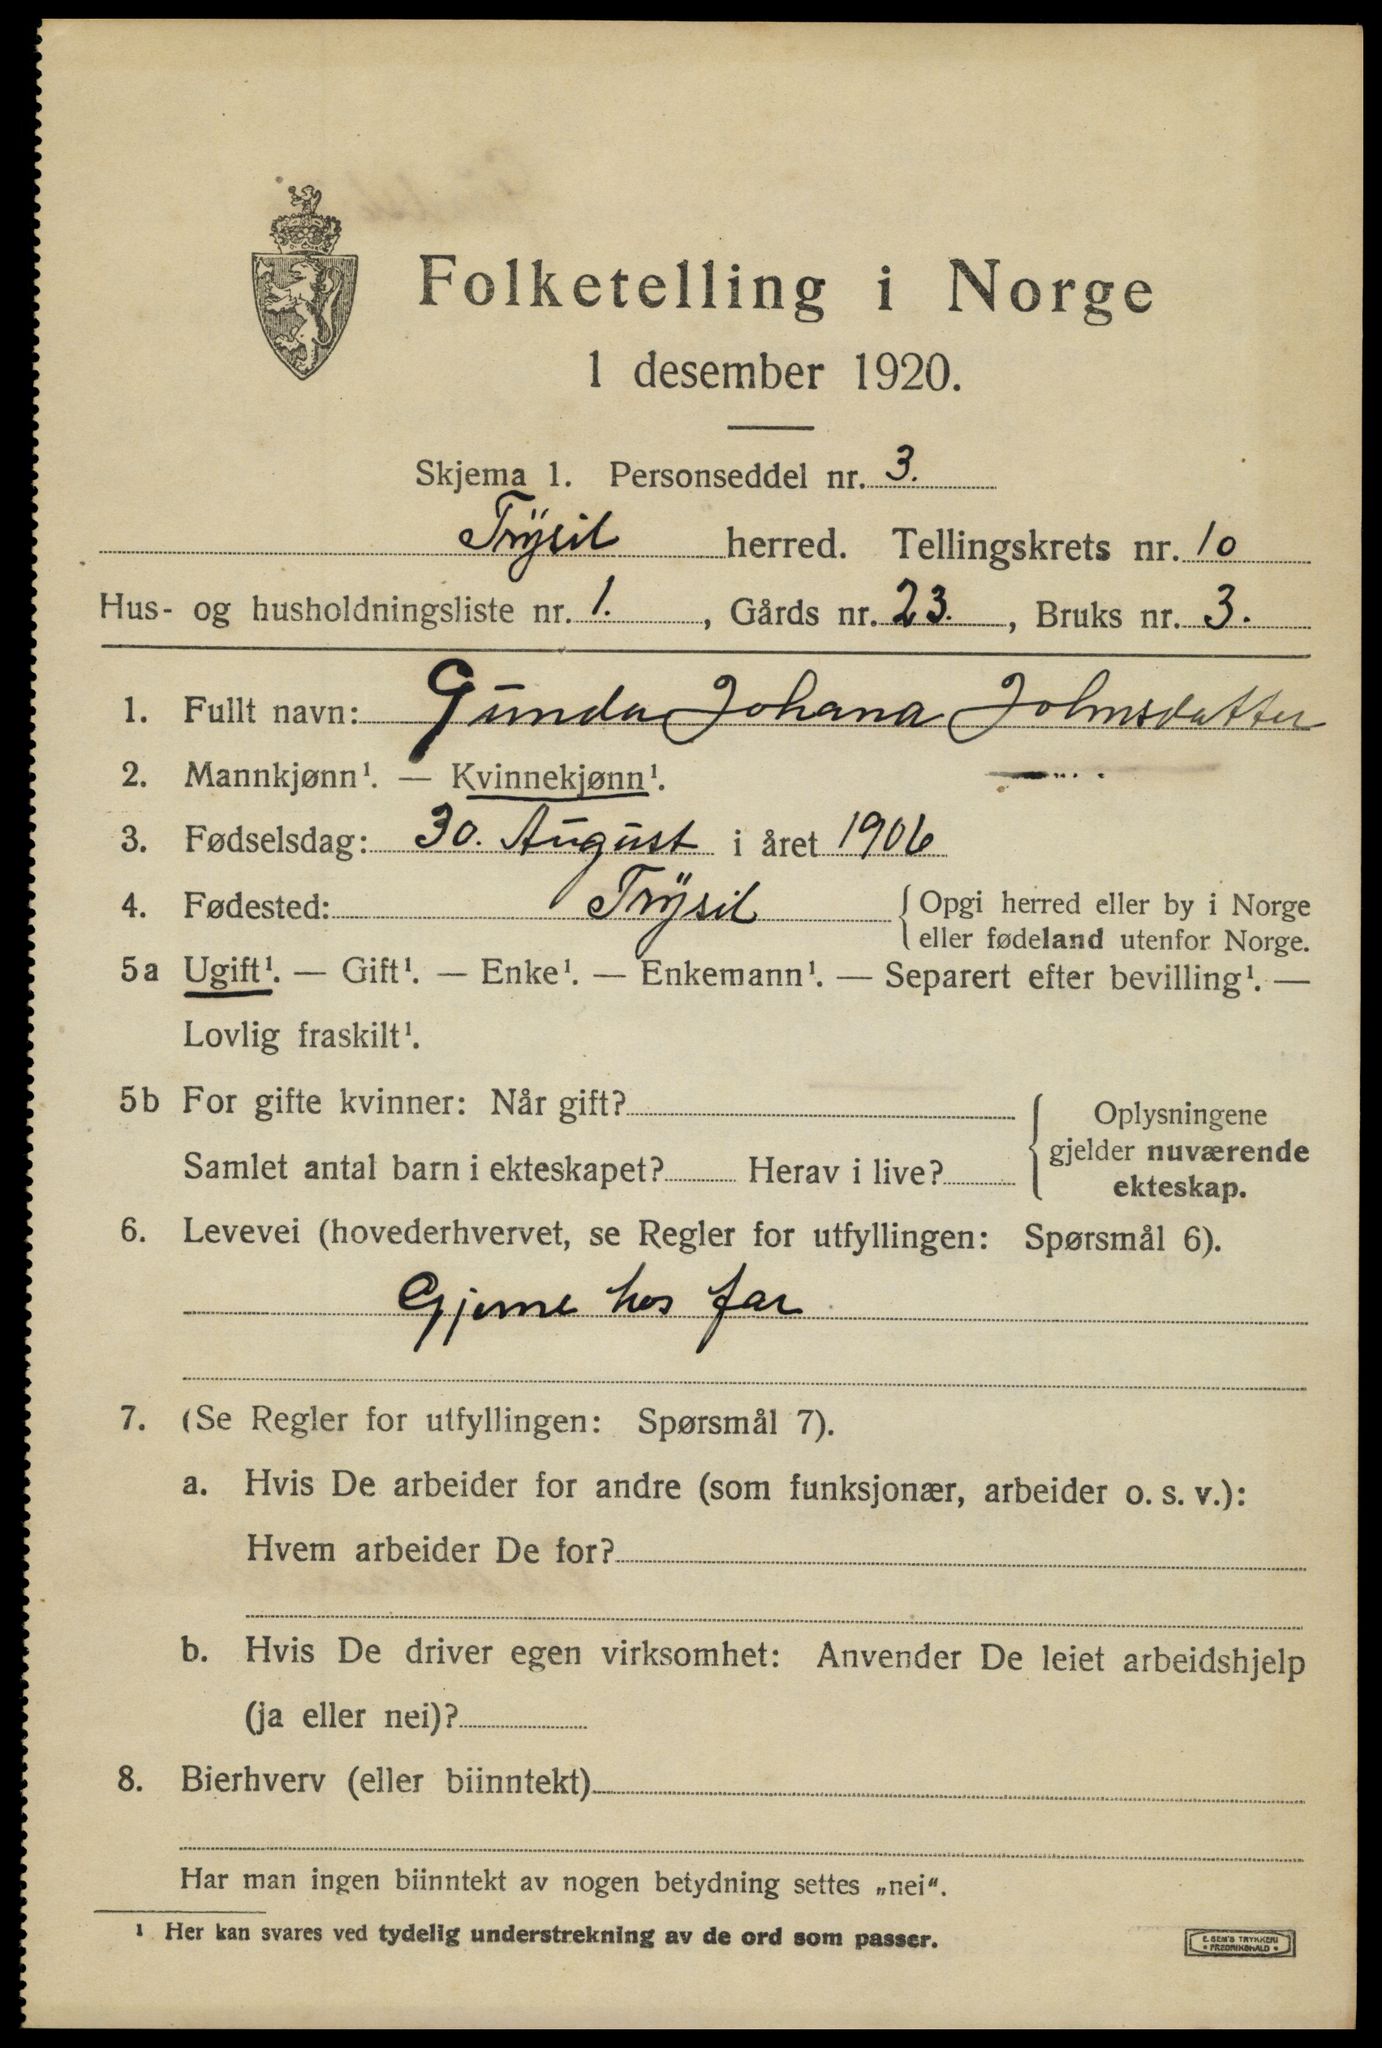 Folketelling i Norge
1 desember 1920.
Skjema 1. Personseddel nr. 3.
Trÿsil herred. Tellingskrets nr. 10
Hus- og husholdningsliste nr. 1., Gårds nr. 23., Bruks nr. 3.
1. Fullt navn: Gunda Johana Johnsdatter
2. Mannkjønn¹. — Kvinnekjønn¹.
3. Fødselsdag: 30. August i året 1906
4. Fødested: Trÿsil { Opgi herred eller by i Norge
eller fødeland utenfor Norge.
5a Ugift¹. — Gift¹. — Enke¹. — Enkemann¹. — Separert efter bevilling¹. —
Lovlig fraskilt¹.
5b For gifte kvinner: Når gift?
Samlet antal barn i ekteskapet? Herav i live?
{ Oplysningene
gjelder nuværende
ekteskap.
6. Levevei (hovederhvervet, se Regler for utfyllingen: Spørsmål 6).
Gjeme hos far
7. (Se Regler for utfyllingen: Spørsmål 7).
a. Hvis De arbeider for andre (som funksjonær, arbeider o. s. v.):
Hvem arbeider De for?
b. Hvis De driver egen virksomhet: Anvender De leiet arbeidshjelp
(ja eller nei)?
8. Bierhverv (eller biinntekt)
Har man ingen biinntekt av nogen betydning settes „nei“.
¹ Her kan svares ved tydelig understrekning av de ord som passer.
E. SEM'S TRYKKERI
• FREDRIKSHALD •